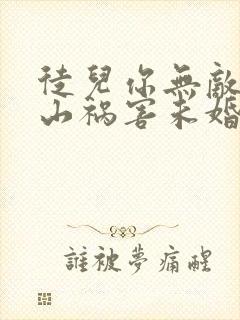 徒兒你無敵
山禍害未婚
誰被夢痛醒